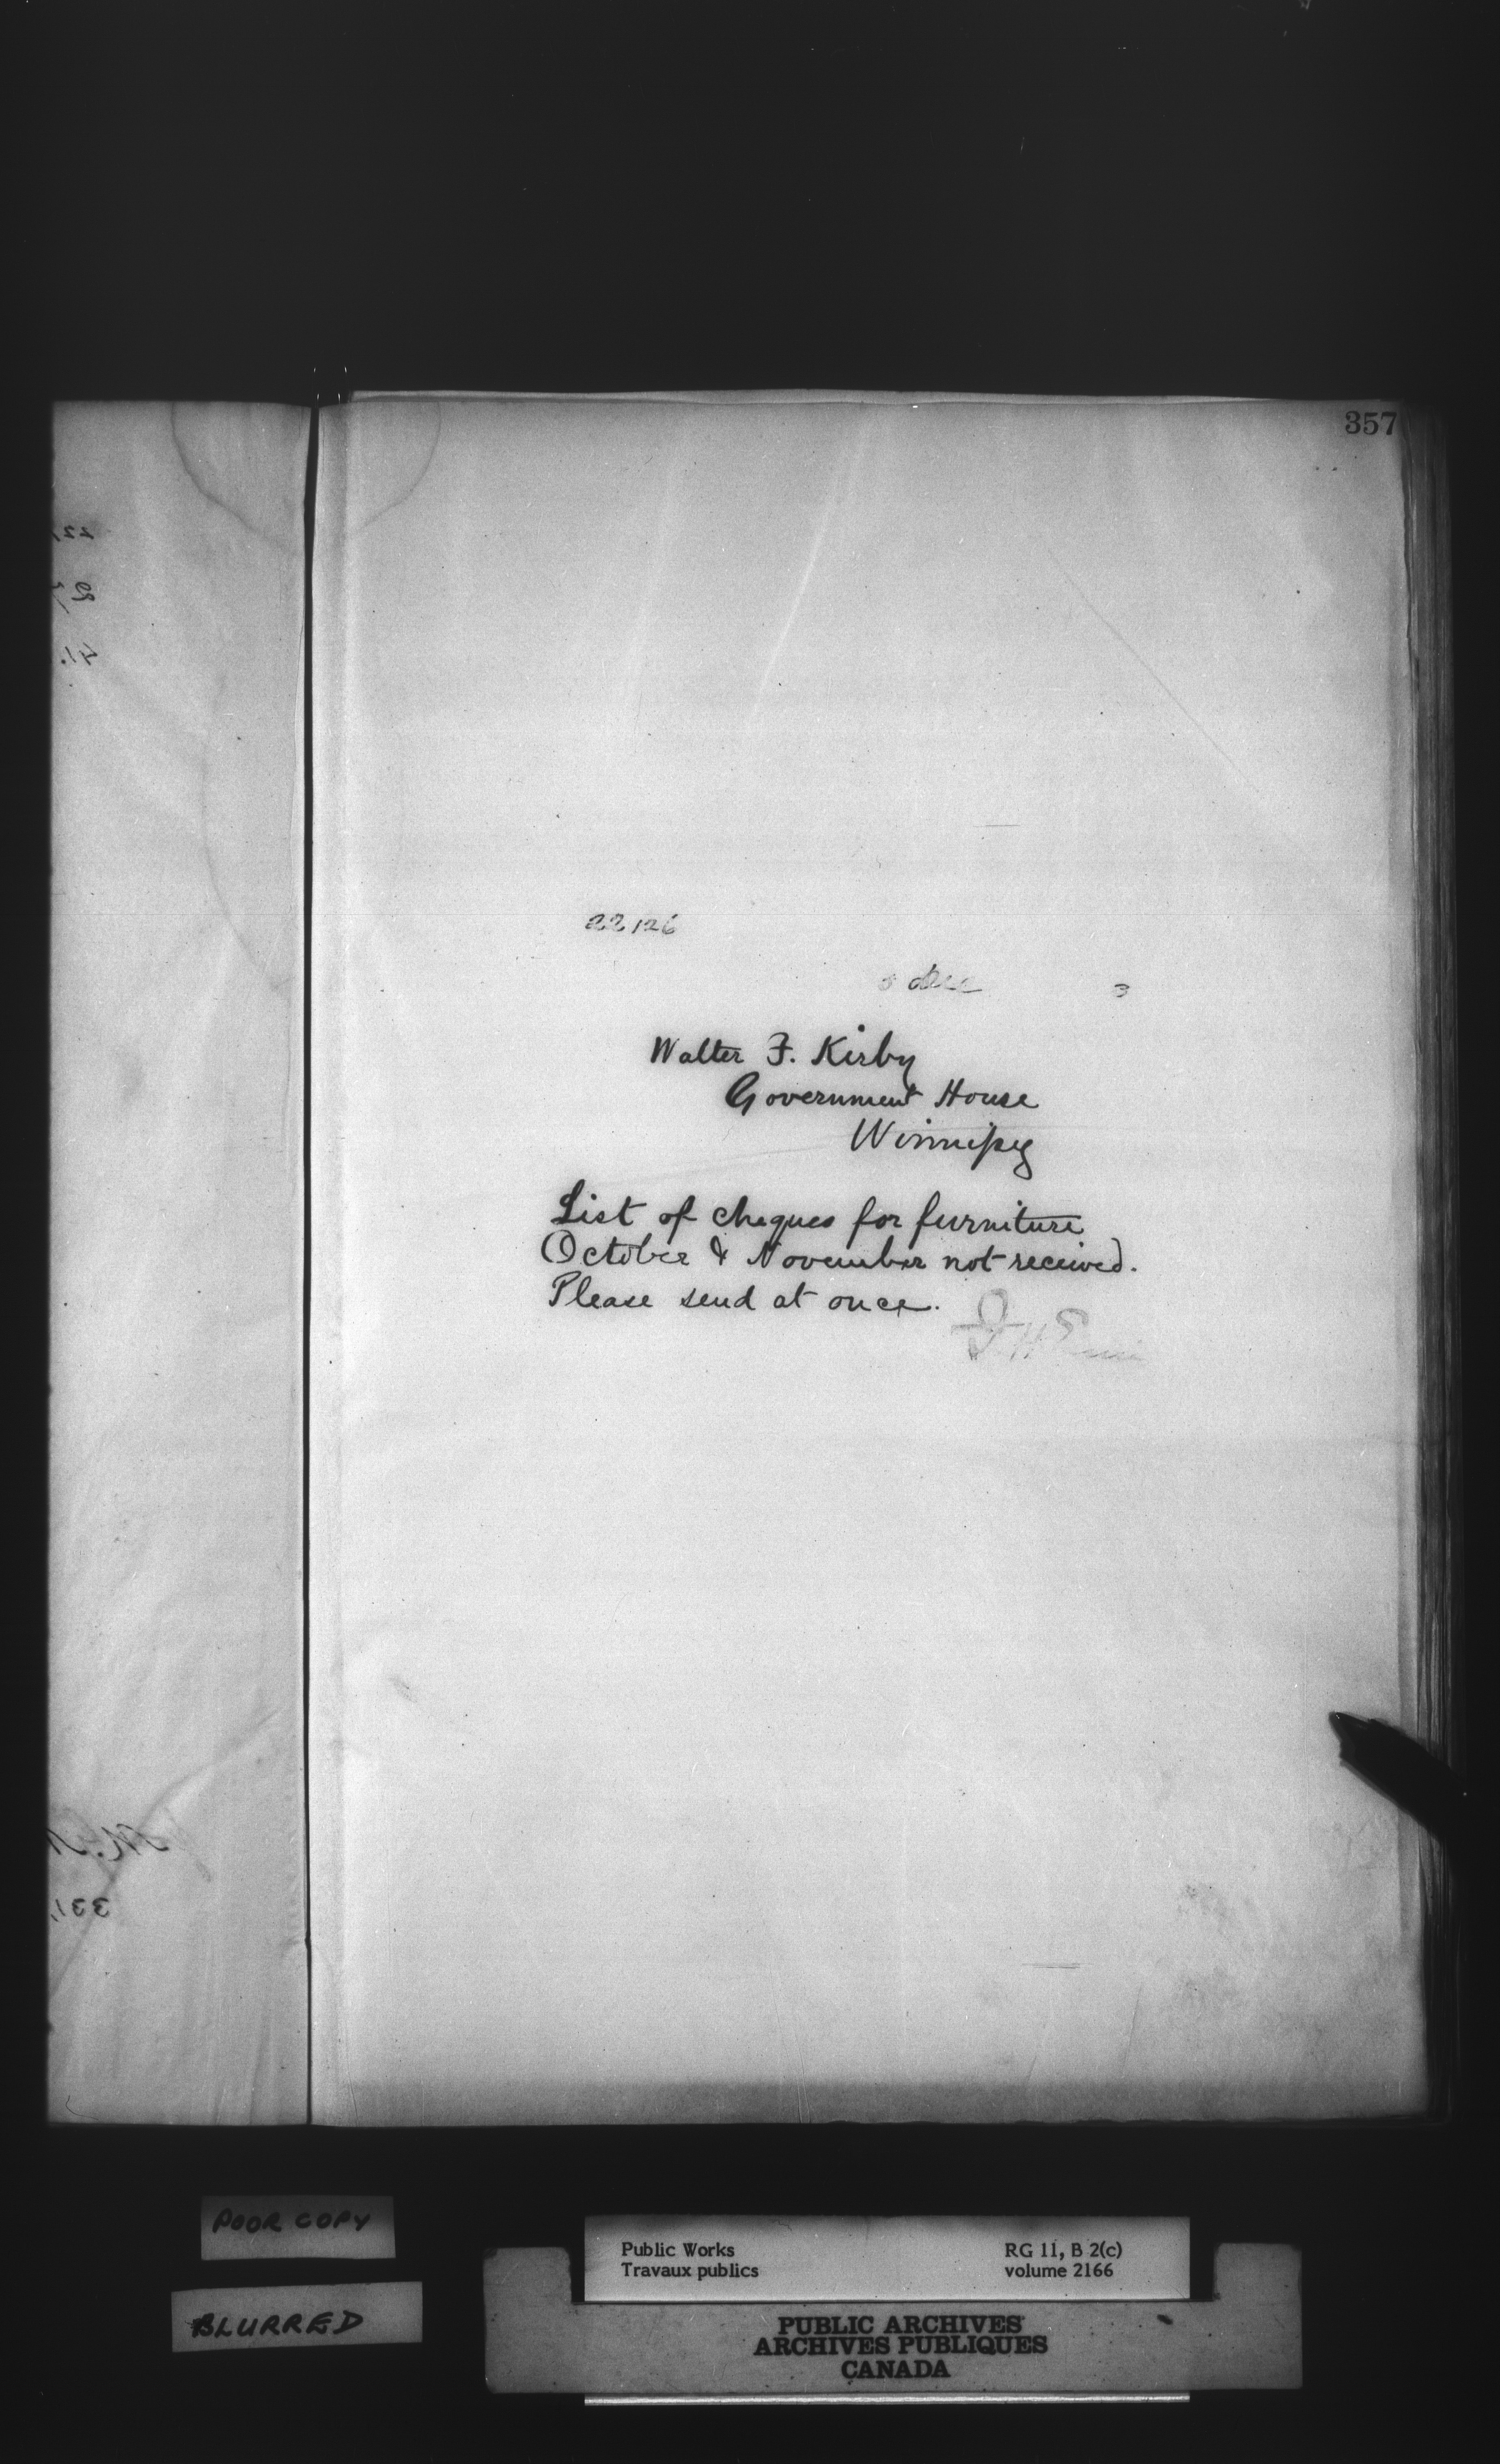 357
22126
Dec 3
Walter F. Kirby
Government House
Winnipeg
List of cheques for furniture
October & November not received.
Please send at once.
POOR COPY
BLURRED
Public Works
Travaux publics
RG 11, B 2(c)
volume 2166
PUBLIC ARCHIVES
ARCHIVES PUBLIQUES
CANADA